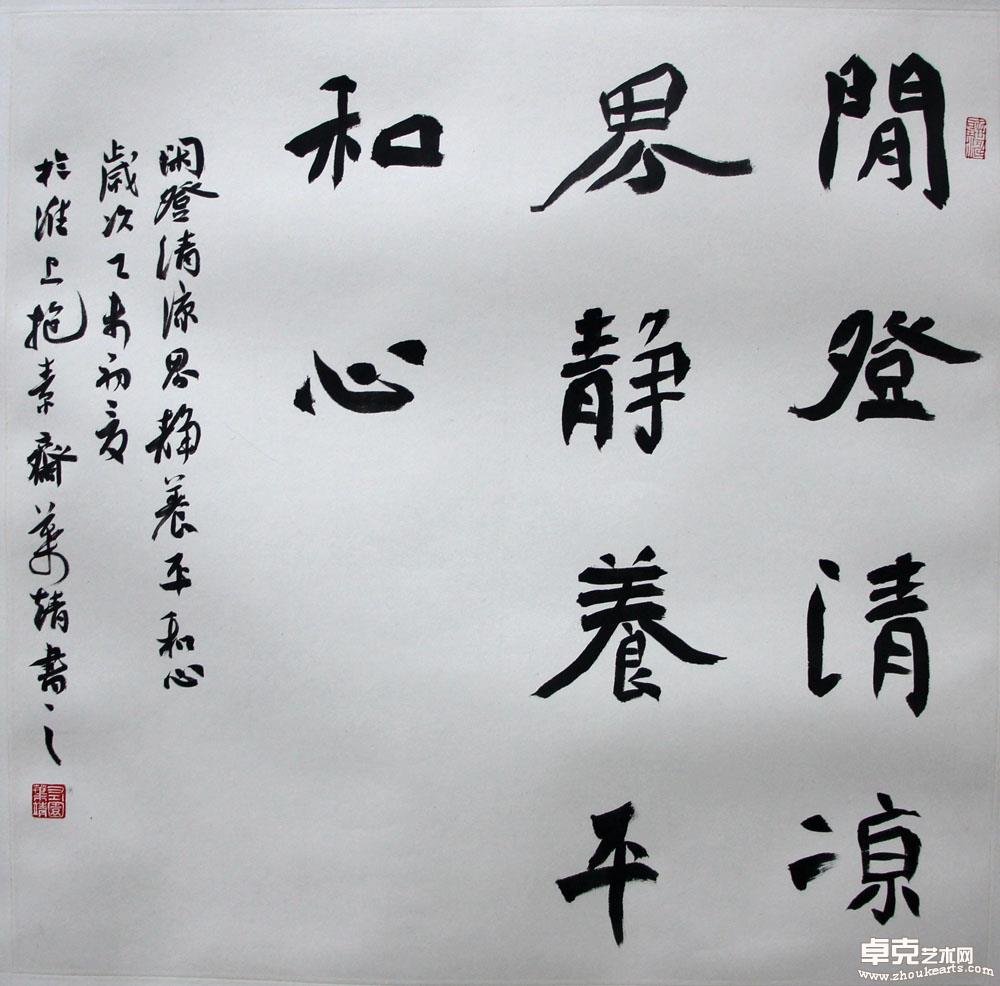 閒登清凉
界静養平
和心
闲登清凉界静養平和心
歲次乙未初夏
於淮上抱素齋葉靖書之
卓克艺术网
www.zhoukearts.com